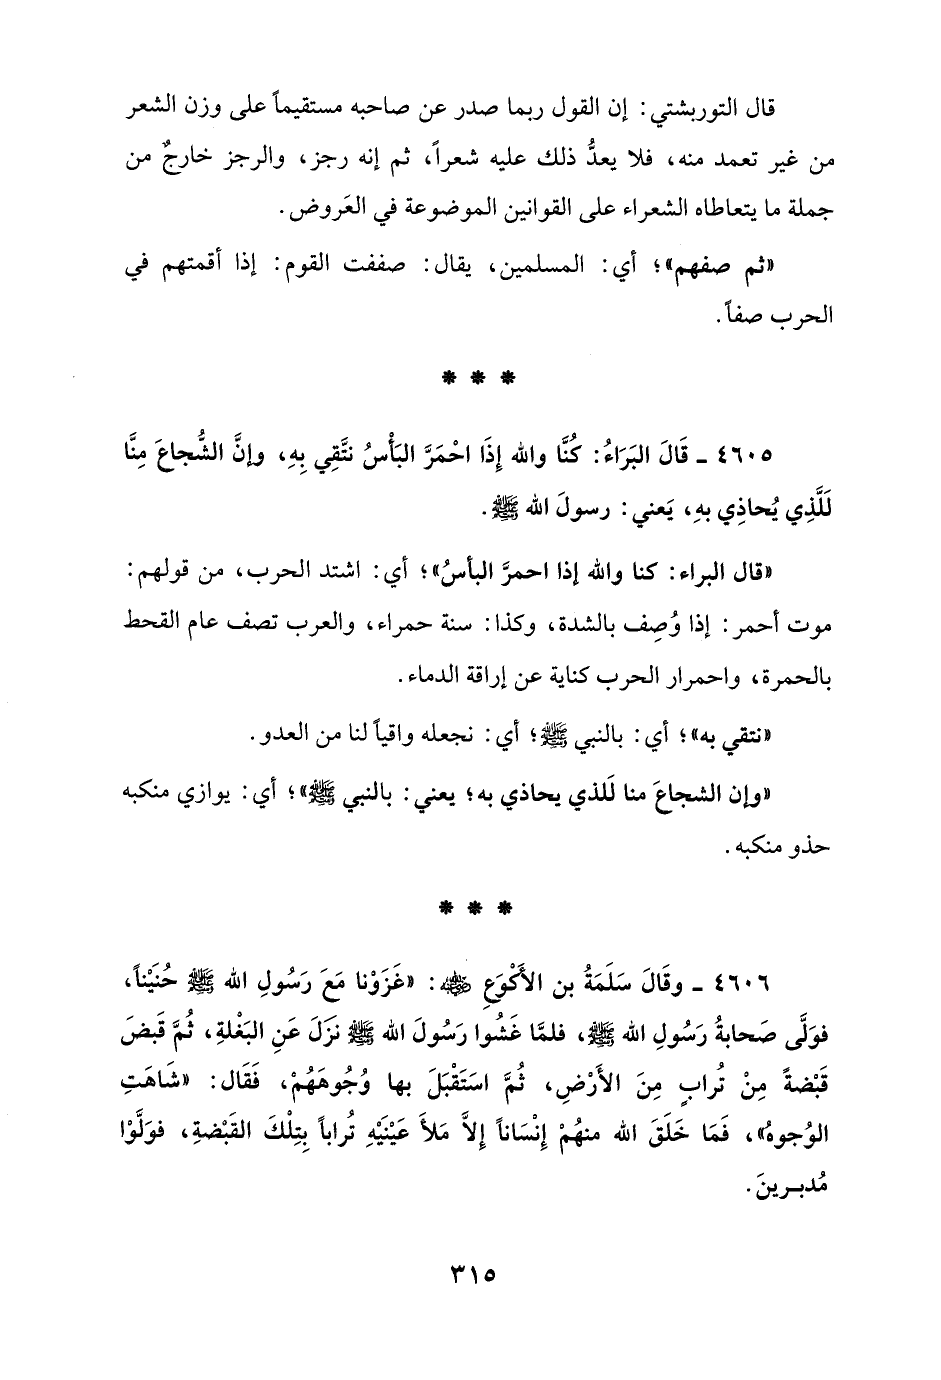 قال التوربشتي: إن القول ربما صدر عن صاحبه مستقيماً على وزن الشعر
من غير تعمد منه، فلا يعدُّ ذلك عليه شعراً، ثم إنه رجز، والرجز خارجٌ من
جملة ما يتعاطاه الشعراء على القوانين الموضوعة في العَروض.
«ثم صفهم»؛ أي: المسلمين، يقال: صففت القوم: إذا أقمتهم في
الحرب صفاً.
* * *
٤٦٠٥ ـ قَالَ البَرَاءُ: كُنَّا والله إِذَا احْمَرَّ البَأْسُ نتَّقِي بِهِ، وإنَّ الشُّجاعَ مِنَّا
لَلَّذِي يُحاذِي بهِ، يَعني: رسولَ الله ﷺ.
«قال البراء: كنا والله إذا احمرَّ البأسُ»؛ أي: اشتد الحرب، من قولهم:
موت أحمر: إذا وُصِف بالشدة، وكذا: سنة حمراء، والعرب تصف عام القحط
بالحمرة، واحمرار الحرب كناية عن إراقة الدماء.
«نتقي به»؛ أي: بالنبي ﷺ؛ أي: نجعله واقياً لنا من العدو.
«وإن الشجاعَ منا لَلذي يحاذي به؛ يعني: بالنبي ﷺ»؛ أي: يوازي منكبه
حذو منكبه.
* * *
٤٦٠٦ ـ وقَالَ سَلَمَةُ بن الأَكْوَعِ ﵁: «غَزَوْنا مَعَ رَسُولِ الله ﷺ حُنَيْناً،
فوَلَّى صَحابةُ رَسُولِ الله ﷺ، فلمَّا غَشُوا رَسُولَ الله ﷺ نزَلَ عَنِ البَغْلةِ، ثُمَّ قَبضَ
قَبْضةً مِنْ تُرابٍ مِنَ الأَرْضِ، ثُمَّ اسْتَقْبَلَ بها وُجُوهَهُمْ، فَقَال: «شَاهَتِ
الوُجوهُ»، فَمَا خَلَقَ الله منهُمْ إِنْسَاناً إِلاَّ مَلأَ عَيْنَيْهِ تُراباً بِتِلْكَ القَبْضةِ، فوَلَّوْا
مُدبـرينَ.
٣١٥